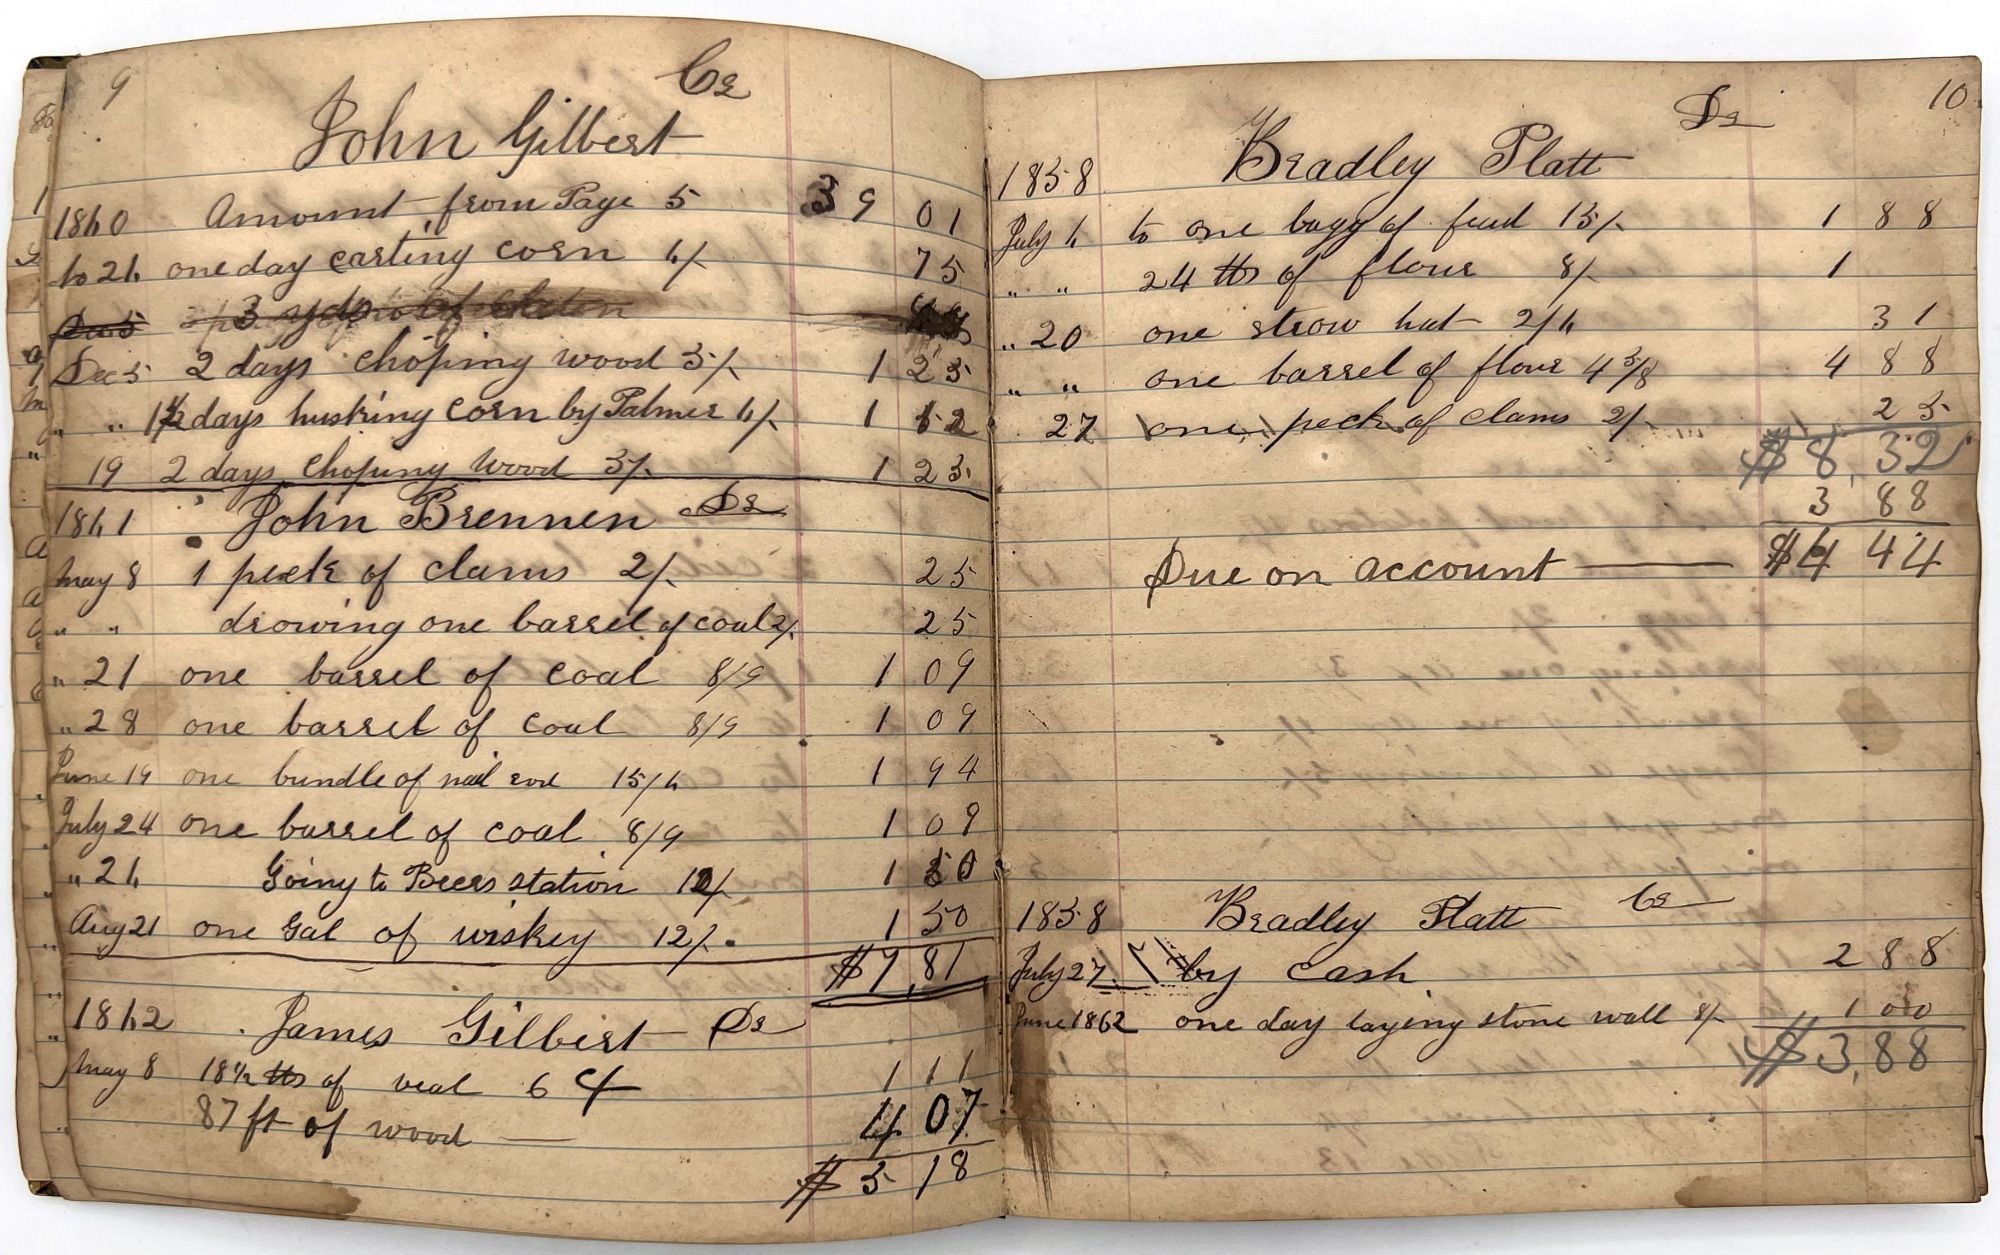 9
Cr
John Gilbert
1860 Amount from Page 5 39 01
to 26 one day carting corn 6/- 75
Dec 5 3 yds of
Dec 5 2 days choping wood 5/- 1 25
" " 1 1/2 days husking corn by Palmer 6/- 1 12
19 2 days choping wood 5/- 1 25
1861 John Brennen Dr
May 8 1 peck of clams 2/- 25
" " drowing one barrel of coal 2/- 25
" 21 one barrel of coal 8/9 1 09
" 28 one barrel of coal 8/9 1 09
June 19 one bundle of nail rod 15/6 1 94
July 24 one barrel of coal 8/9 1 09
" 26 Going to Beers station 12/- 1 50
Aug 21 one Gal of wiskey 12/- 1 50
$7,81
1862 James Gilbert Dr
May 8 18 1/2 lbs of veal 6 c 1 11
87 ft of wood — 4 07
$5 18
10
Dr
1858 Bradley Platt
July 6 to one bagg of feed 15/- 1 88
" " 24 lbs of flour 8/- 1
" 20 one strow hat 2/6 31
" " one barrel of flour 4 5/8 4 88
27 one peck of clams 2/- 25
$8,32
3 88
Due on account — $4 44
1858 Bradley Platt Cr
July 27 by cash 2 88
June 1862 one day laying stone wall 8/- 1 00
$3,88